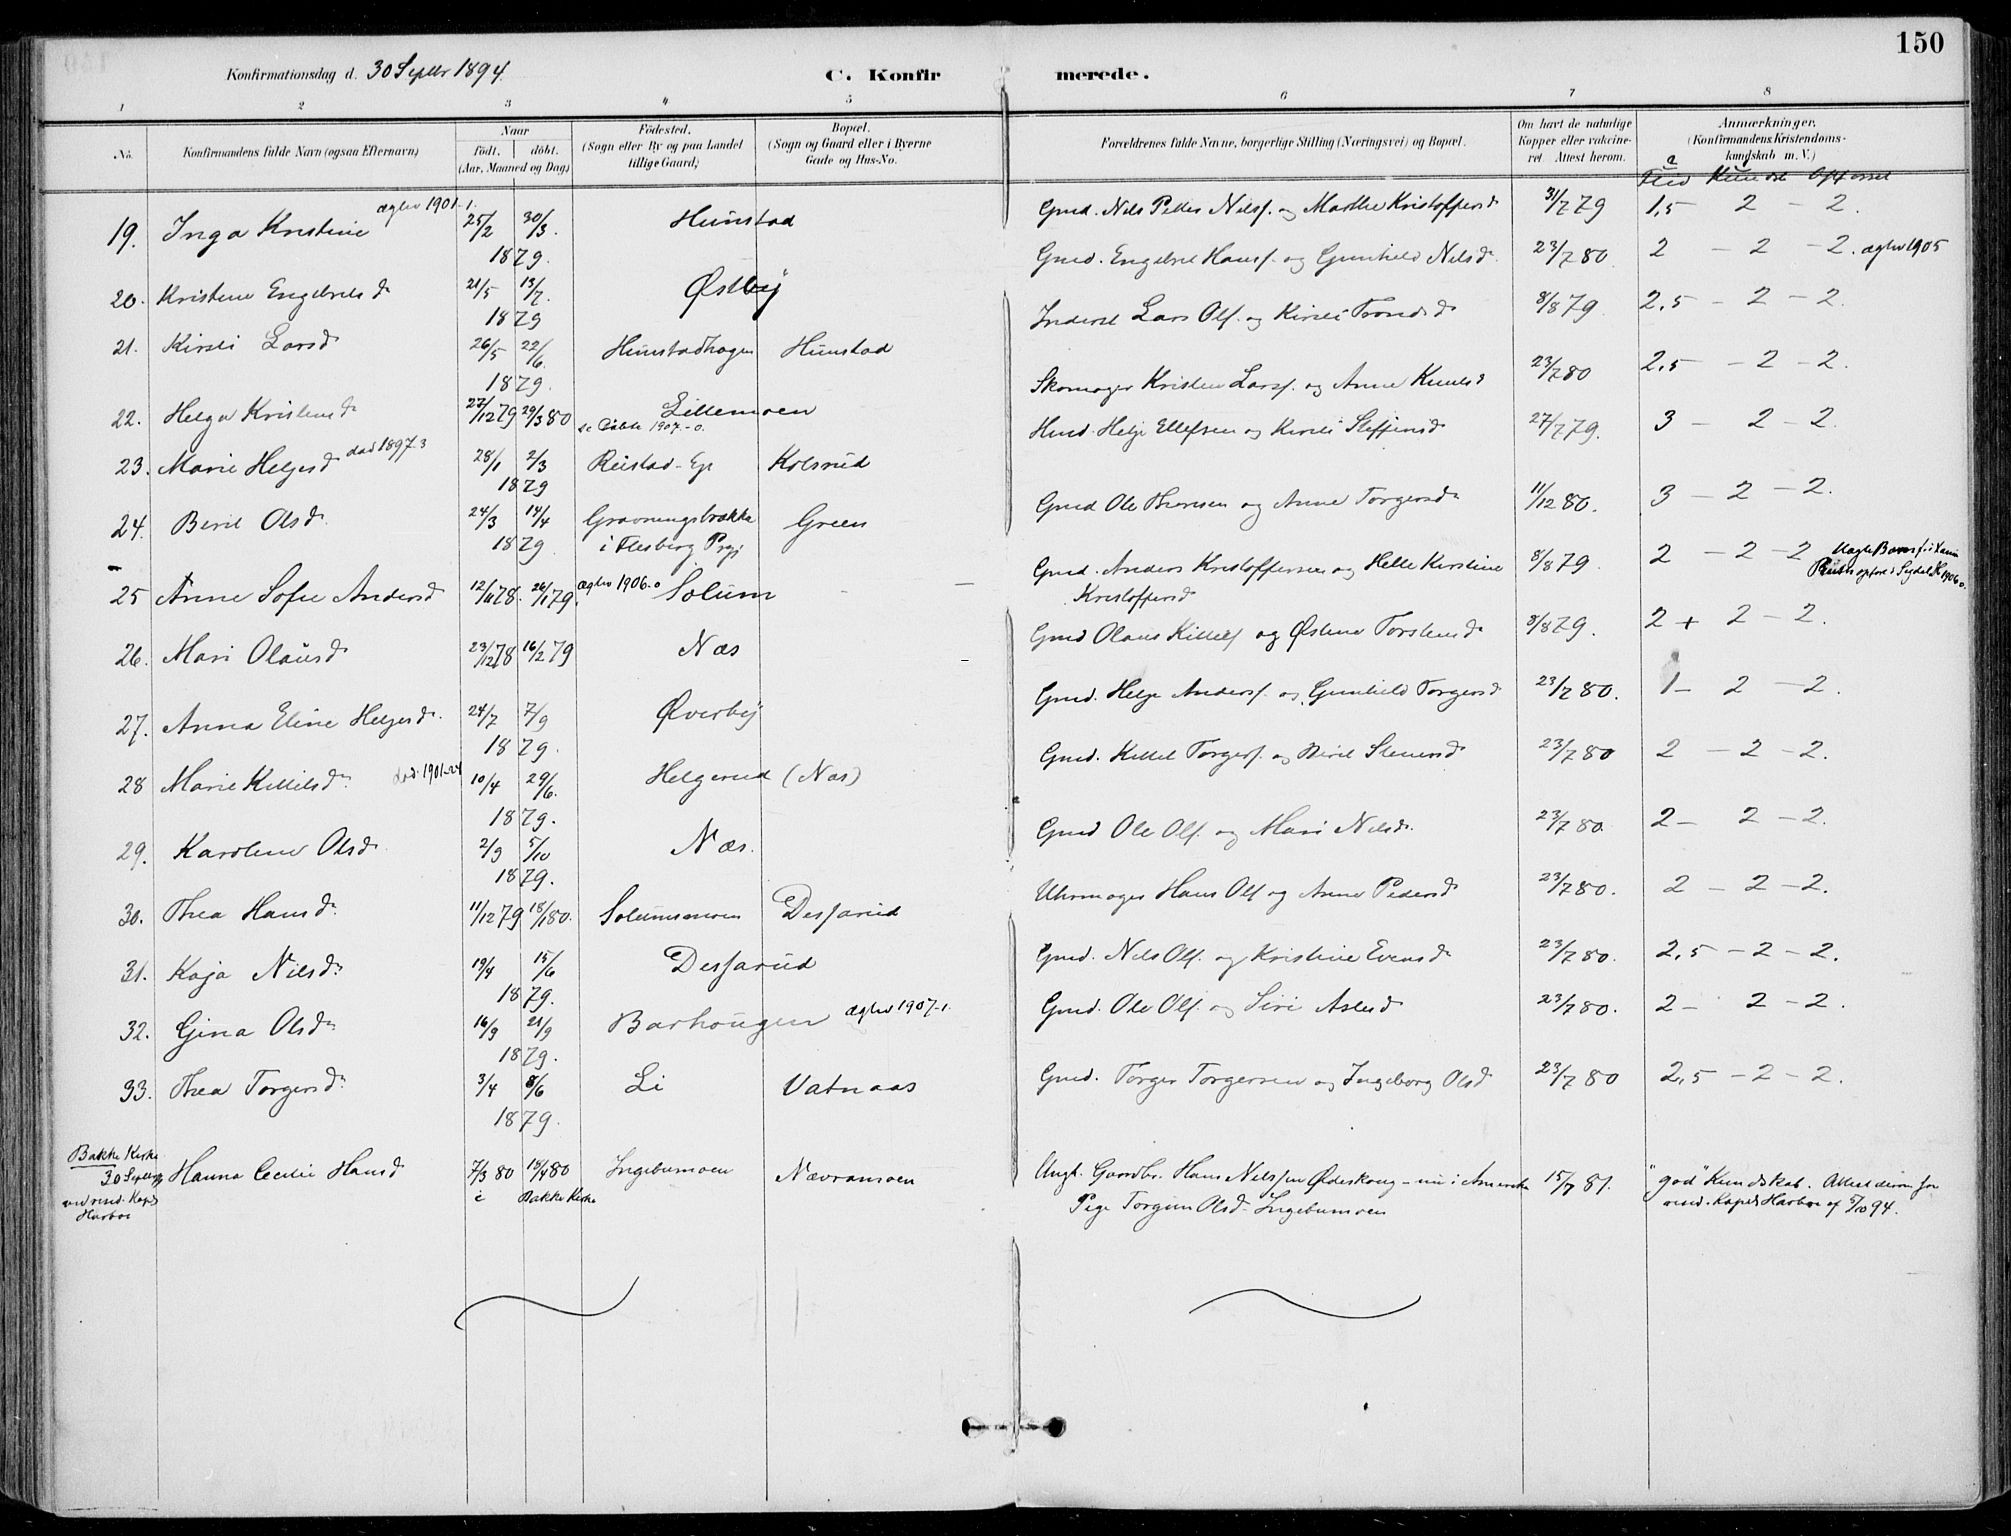 150
Konfirmationsdag d. 30 Septbr 1894.
C. Konfirmerede.
1 2 3 4 5 6 7 8
No. Konfirmandens fulde Navn (ogsaa Efternavn) Naar født. døbt. (Aar, Maaned og Dag) Fødested. (Sogn eller By og paa Landet tillige Gaard) Bopæl. (Sogn og Gaard eller i Byerne Gade og Hus-No. Forældrenes fulde Navne, borgerlige Stilling (Næringsvei) og Bopæl. Om havt de naturlige Kopper eller vaccineret Attest herom. Anmærkninger. (Konfirmandens Kristendomskundskab m. V.)
Flid
19. Inga Kristine ægtev 1901-1. 25/2 30/3 1879. Hunstad Gmd. Nils Peder Nilsf. og Marthe Kristoffersd 31/7 79 1,5 - 2 - 2.
20. Kristine Engebretsd 21/5 13/7 1879 Østby Gmd. Engebret Hansf. og Gunhild Nilsd. 23/7 80 2 - 2 - 2. ægtev 1905
21. Kirsti Larsd 26/5 22/6 1879. Hunstadhagen Hunstad Inderst Lars Olf. og Kirsti Tronds d 8/8 79 2,5 - 2 - 2.
22. Helga Kristensd 27/12 79 29/3 80 Lillemoen se Døbte 1907.-0. Skomager Kristen Larsf. og Anne Knutsd 23/7 80 2,5 - 2 - 2.
23. Marie Helgesd død 1897 3 28/1 2/3 1879 Reistad-Eje Kolsrud Husd. Helge Ellefsen og Kirsti Steffensd 27/7 79. 3 - 2 - 2.
24. Berit Olsd. 24/3 14/4 1879. Gravningsbrække i Flesberg Prgj Green Gmd Ole Thoresen og Anne Torgersd 11/12 80. 3 - 2 - 2.
25 Anne Sofie Andersd 12/11 78. 26/1 79. ægtev 1906.-0 Solum Gmd. Anders Kristoffersen og Helle Kirstine Kristoffersd 8/8 79. 2 - 2 - 2
26. Mari Olausd 23/12 78 16/2 79 Næs Gmd Olaus Kittelf og Østine Torstensd 8/8 79. 2 + 2 - 2.
27. Anna Eline Helgesd. 24/7 7/9 1879. Øverby Gmd. Helge Andersf. og Gunhild Torgersd 23/7 80. 1 - 2 - 2.
28 Marie Kittilsd. død 1901-24 10/4 29/6. 1879. Helgerud (Næs) Gmd. Kittel Torgersf. og Berit Stenersd 23/7 80 2 - 2 - 2.
29. Karoline Olsd. 2/9 5/10 1879. Næs. Gmd Ole Olf. og Mari Nilsd. 23/7 80 2 - 2 - 2.
30. Thea Hansd. 11/12 79 18/1 80. Solumsmoen Desjarud Uhrmager Hans Olf og Anne Pedersd 23/7 80. 2 - 2 - 2.
31. Kaja Nilsd. 19/4 15/6 1879. Desjarud Gmd. Nils Olf. og Kristine Evensd 23/7 80. 2,5 - 2 - 2.
32. Gina Olsd. 16/9 21/9 1879. Barhougen ægtev 1907-1. Gmd. Ole Olf. og Siri Aslesd 23/7 80. 2 - 2 - 2.
33. Thea Torgersd. 3/4 8/6 1879. Li Vatnaas Gmd. Torger Torgersen og Ingeborg Olsd 23/7 80 2,5 - 2 - 2.
Bakke Kirke 30 Septbr ved resd. Kap. Harboe
Hanna Cecilie Hansd 7/3 80 18/4 80 i Bakke Kirke Ingebumoen Nævramoen Ungk. Gaardbr. Hans Nilssen Ødeskoug - nu i Amerika 15/7 81. "god" Kundskab. Attest derom fra
Pige Torgun Olsd. Ingebumoen resd. Kap. Harboe af 5/10 94.